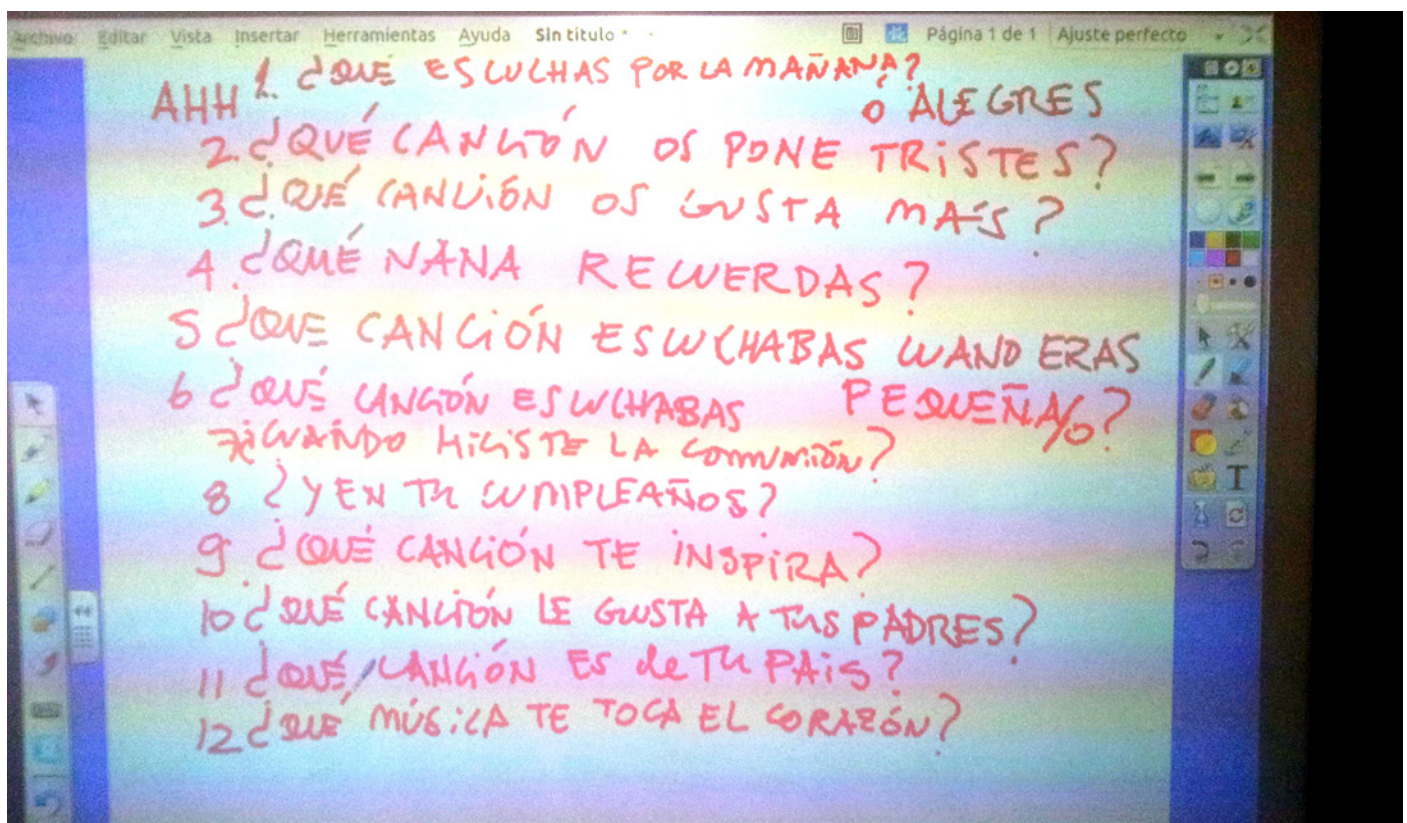 Archivo Editar Vista Insertar Herramientas Ayuda Sin título * Página 1 de 1 Ajuste perfecto
1. ¿QUÉ ESCUCHAS POR LA MAÑANA?
AHH Ó ALEGRES
2. ¿QUÉ CANCIÓN OS PONE TRISTES?
3. ¿QUÉ CANCIÓN OS GUSTA MÁS?
4. ¿QUÉ NANA RECUERDAS?
5 ¿QUE CANCIÓN ESCUCHABAS CUANDO ERAS
6 ¿QUÉ CANCIÓN ESCUCHABAS PEQUEÑA/O?
7 ¿CUANDO HICISTE LA COMUNIÓN?
8 ¿Y EN TU CUMPLEAÑOS?
9 ¿QUÉ CANCIÓN TE INSPIRA?
10 ¿QUÉ CANCIÓN LE GUSTA A TUS PADRES?
11 ¿QUÉ CANCIÓN ES de TU PAIS?
12 ¿QUÉ MÚSICA TE TOCA EL CORAZÓN?
T